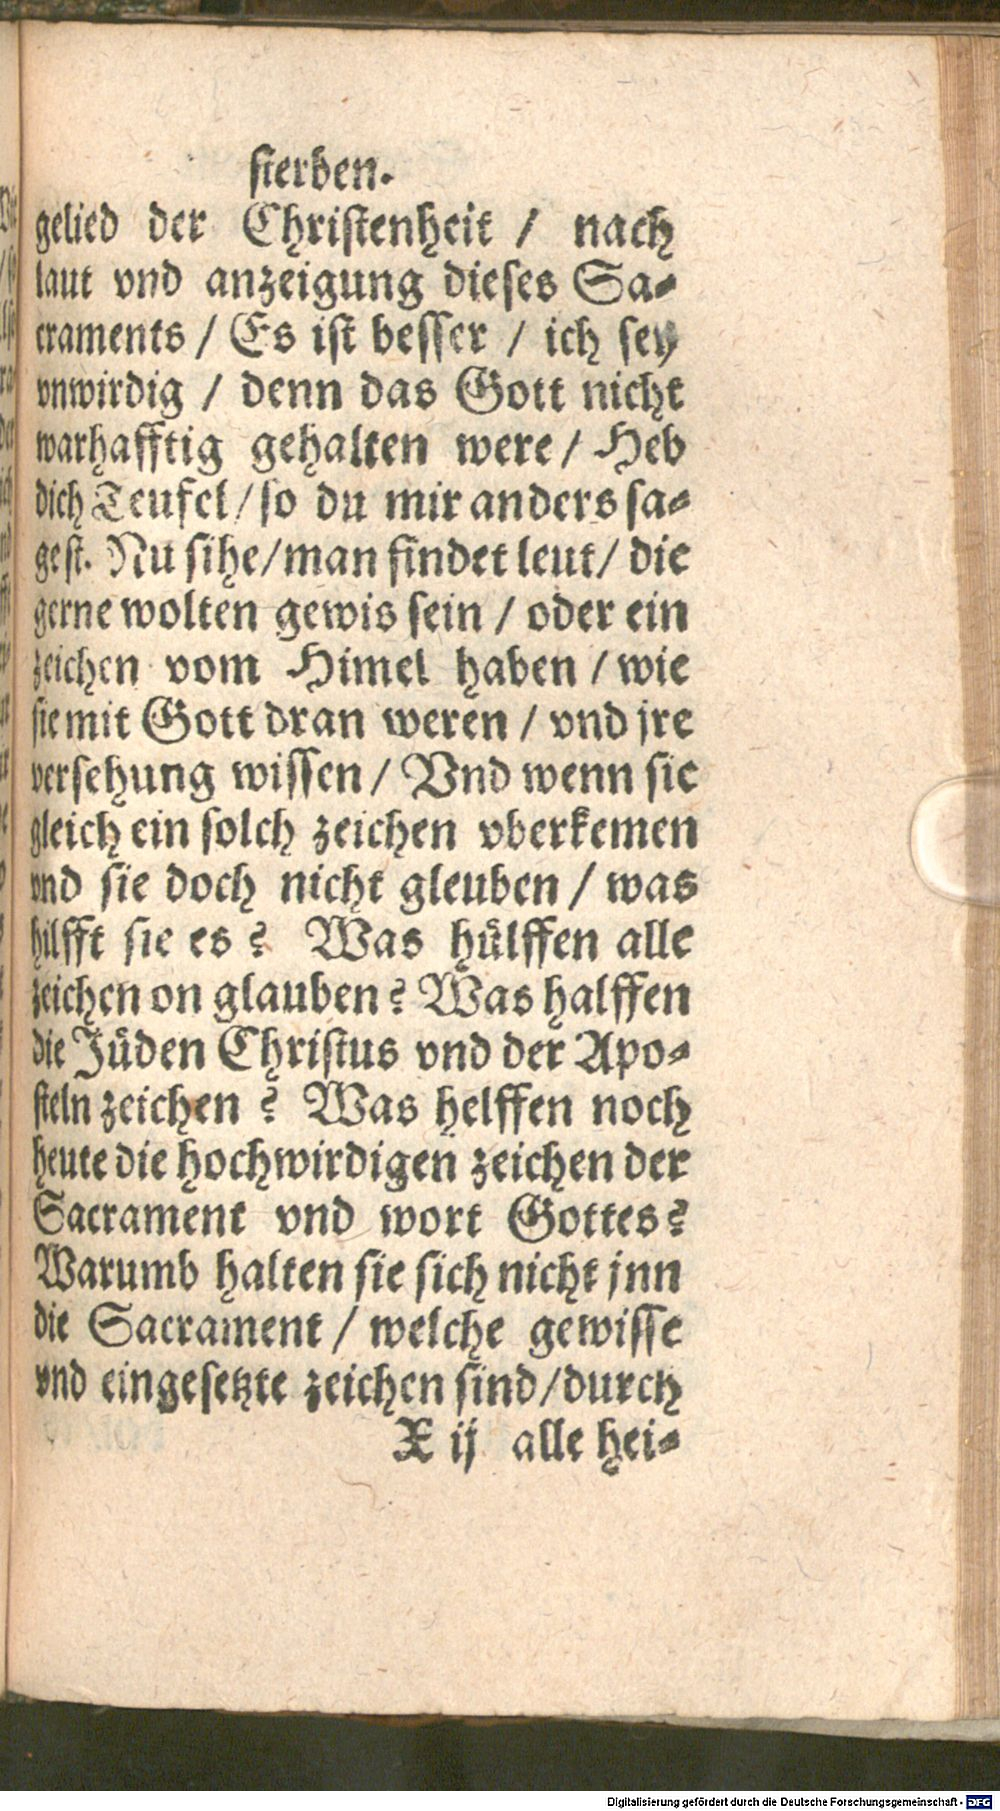 sterben.
gelied der Christenheit / nach
laut vnd anzeigung dieses Sa-
craments / Es ist besser / ich sey
vnwirdig / denn das Gott nicht
warhafftig gehalten were / Heb
dich Teufel / so du mir anders sa-
gest. Nu sihe / man findet leut / die
gerne wolten gewis sein / oder ein
zeichen vom Himel haben / wie
sie mit Gott dran weren / vnd jre
versehung wissen / Vnd wenn sie
gleich ein solch zeichen vberkemen
vnd sie doch nicht gleuben / was
hilfft sie es? Was hülffen alle
zeichen on glauben? Was halffen
die Jüden Christus vnd der Apo-
steln zeichen? Was helffen noch
heute die hochwirdigen zeichen der
Sacrament vnd wort Gottes?
Warumb halten sie sich nicht jnn
die Sacrament / welche gewisse
vnd eingesetzte zeichen sind / durch
X ij alle hei-
Digitalisierung gefördert durch die Deutsche Forschungsgemeinschaft - DFG